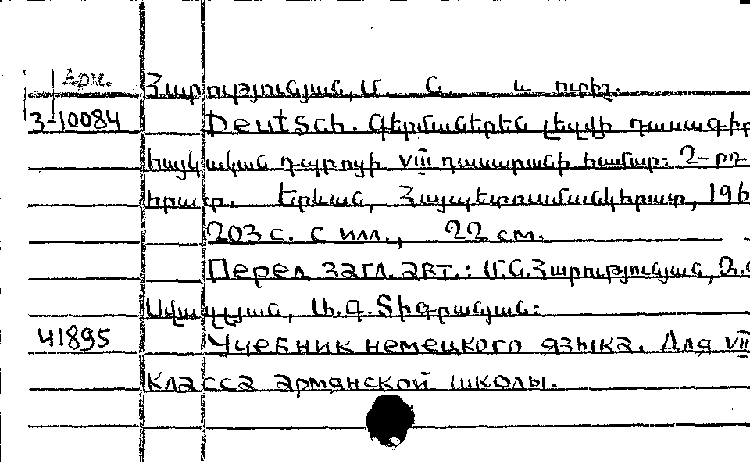 Арм.
Հարությունյան, Մ. Ն. և ուրիշ.
3-10084 Deutsch. Գերմաներեն լեզվի դասագիր
հայկական դպրոցի VIII դասարանի համար: 2-րդ
հրատ. Երևան, Հայպետուսմանկհրատ, 196
203 с. с илл., 22 см.
Перед загл. авт.: Մ.Ն.Հարությունյան,
Ա.Գ.Տիգրանյան:
41895 Учебник немецкого языка. Для VIII
класса армянской школы.